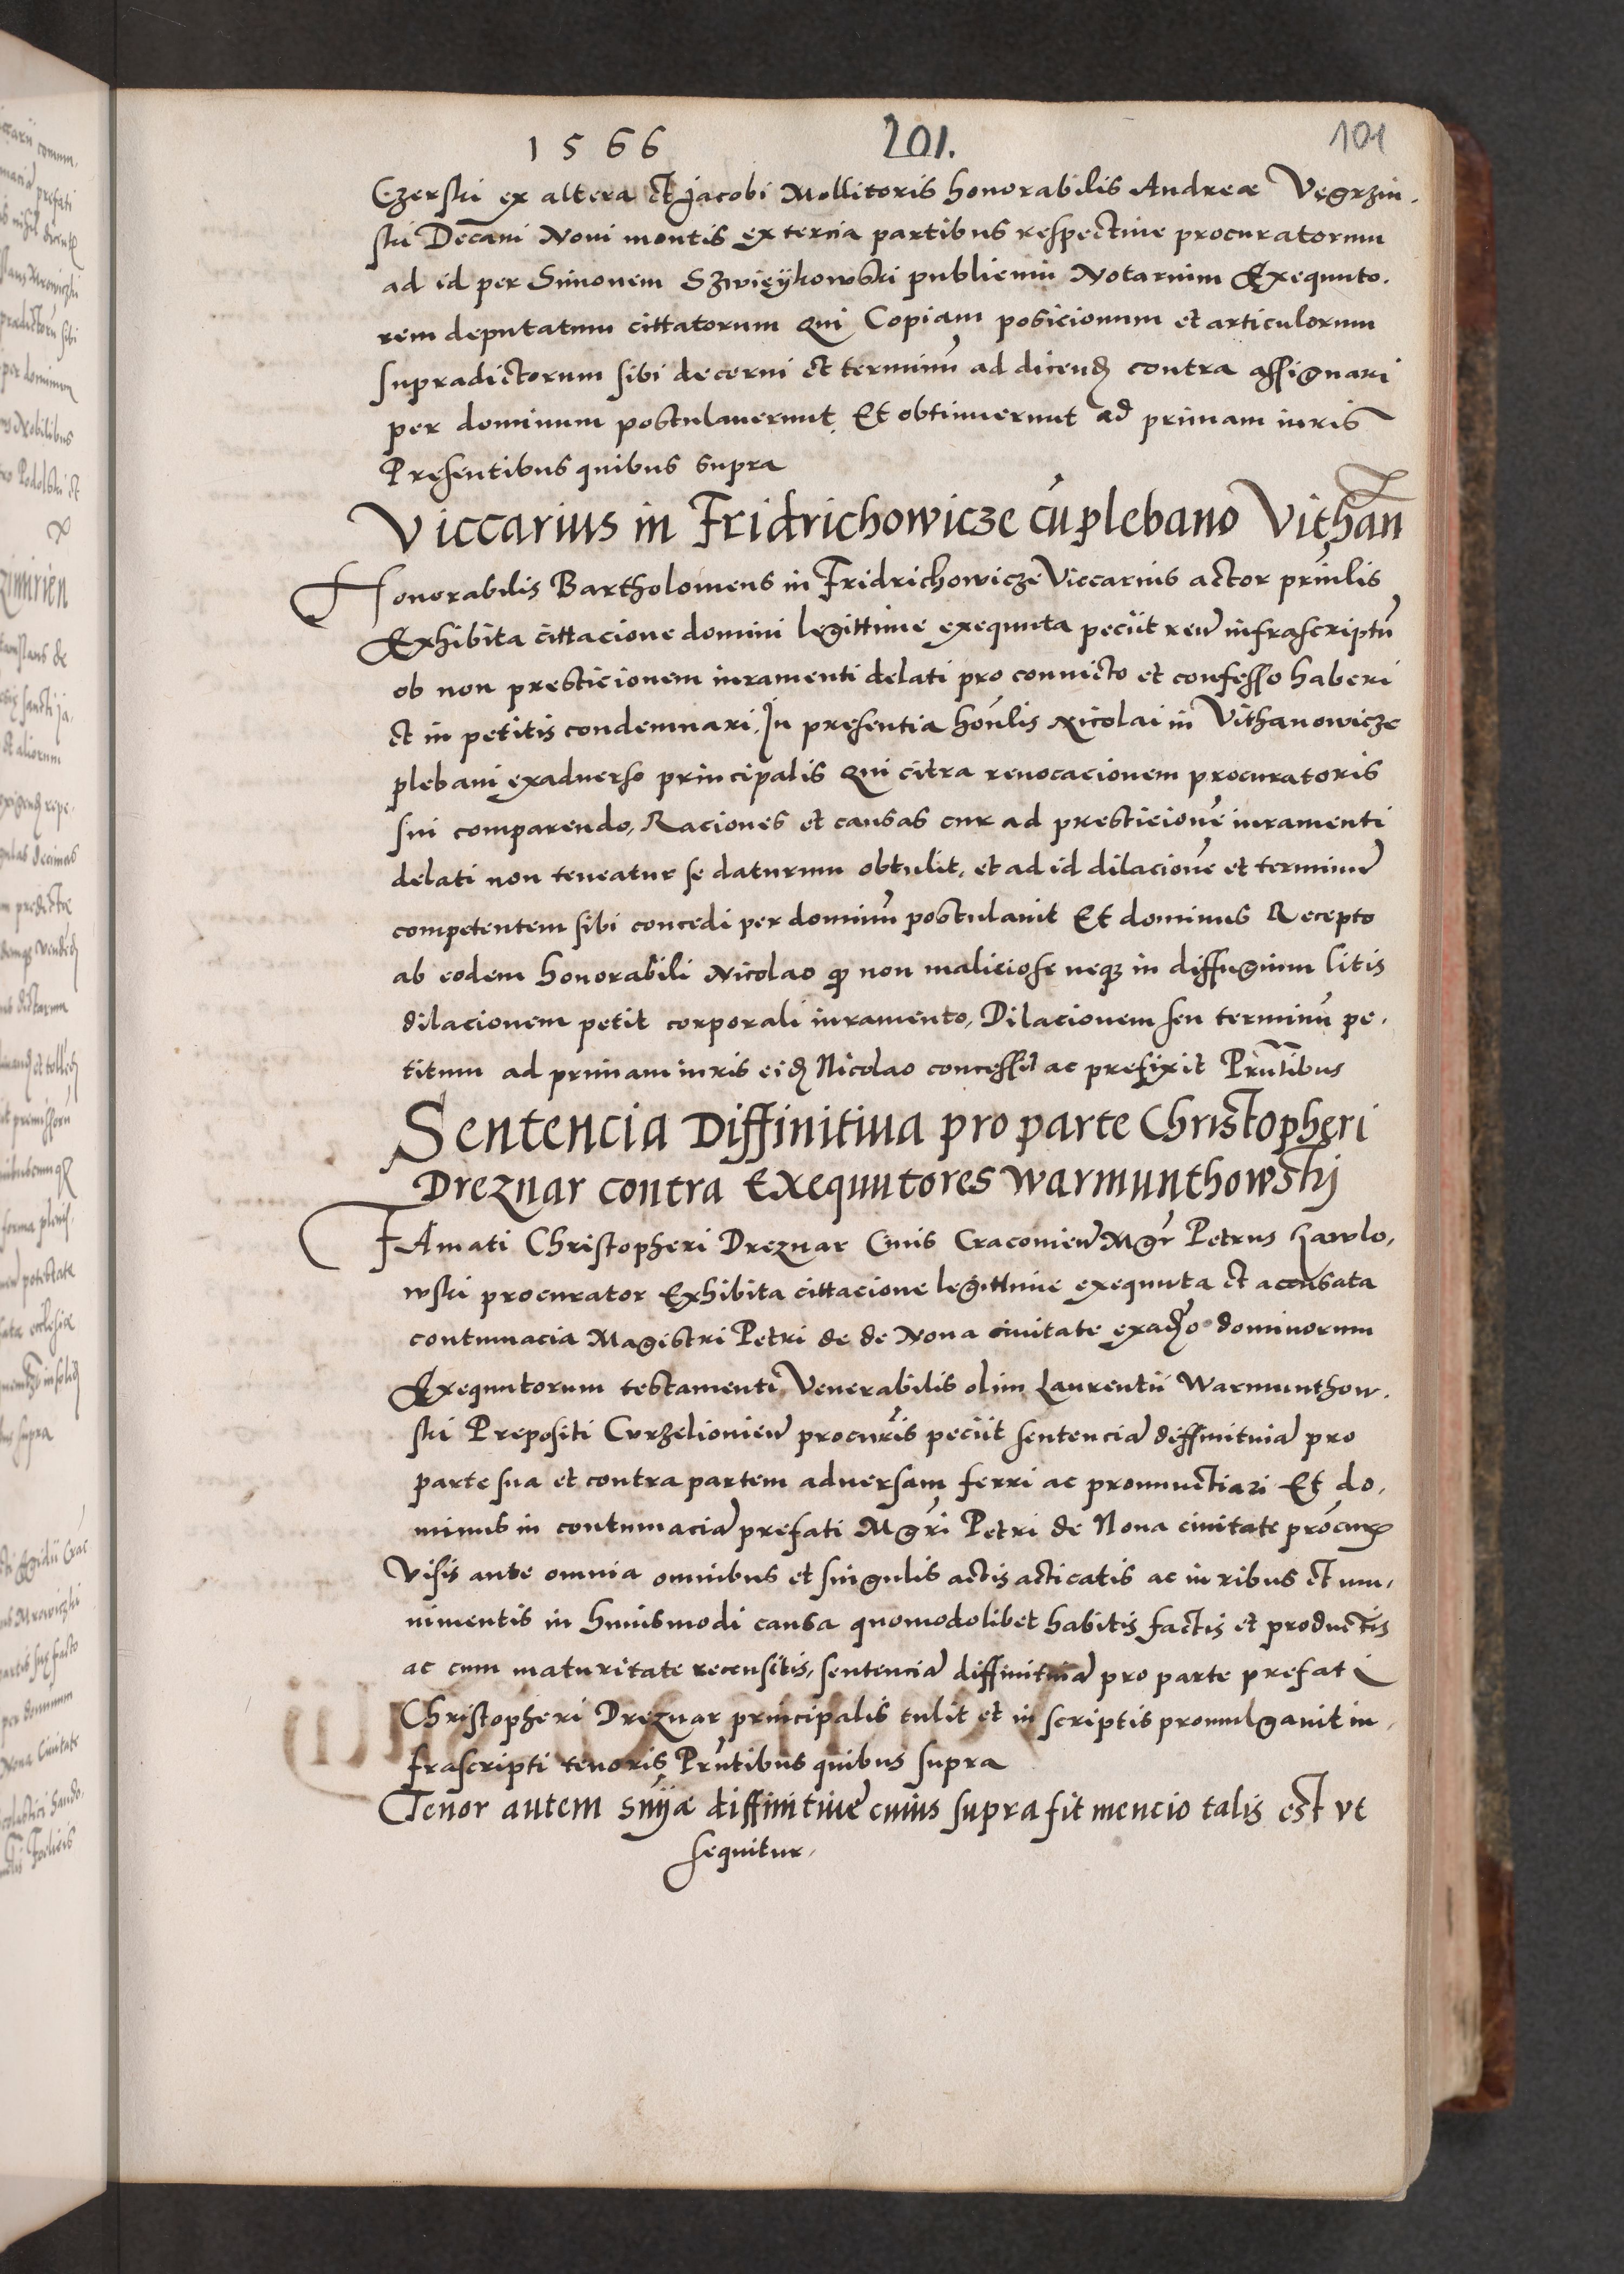 1566 201. 101
Czerski ex altera et Jacobi Mollitoris honorabilis Andreæ Vegrzin.
ski Decani Noui montis ex tercia partibus respectiue procuratorum
ad id per Simonem Szwięÿkowski publicum Notarium Exequuto.
rem deputatum cittatorum Qui Copiam posicionum et articulorum
supradictorum sibi decerni et terminū ad dicendꝭ contra assignari
per dominum postulauerunt Et obtinuerunt ad primam iuris
Presentibus quibus supra
Viccarius in Fridrichowicze cū plebano Vithan̄
Honorabilis Bartholomeus in Fridrichowicze Viccarius actor prin̄lis
Exhibita cittacione domini legittime exequuta peciit reū infrascriptū
ob non presticionem iuramenti delati pro conuicto et confesso haberi
et in petitis condemnari. In presentia hon̄lis Nicolai in Vithanowicze
plebani exaduerso principalis Qui citra reuocacionem procuratoris
sui comparendo, Raciones et causas cur ad presticionē iuramenti
delati non teneatur se daturum obtulit, et ad id dilacionē et terminū
competentem sibi concedi per dominū postulauit Et dominus Recepto
ab eodem honorabili Nicolao ꝙ non maliciose neqꝫ in diffugium litis
dilacionem petit corporali iuramento, Dilacionem seu terminū pe.
titum ad primam iuris eidꝭ Nicolao concessit ac prefixit Prn̄tibus
Sentencia Diffinitiua pro parte Christopheri
Dreznar contra Exequutores Warmunthowskj
FAmati Christopheri Dreznar Ciuis Cracovien̄ Mgr̄ Petrus Gawlo,
wski procurator Exhibita cittacione legittime exequuta et accusata
contumacia Magistri Petri de de Noua ciuitate exadꝭo dominorum
Exequutorum testamenti Venerabilis olim Laurentii Warmunthow.
ski Prepositi Curzelionien̄ procur̄is peciit sentenciā diffinitiuā pro
parte sua et contra partem aduersam ferri ac pronunctiari Et do.
minus in contumaciā prefati Mgr̄i Petri de Noua ciuitate procurꝭ
Visis ante omnia omnibus et singulis actis acticatis ac iuribus et mu,
nimentis in huiusmodi causa quomodolibet habitis factis et productis
ac cum maturitate recensitis, sentenciā diffinitiuā pro parte prefati
Christopheri Dreznar principalis tulit et in scriptis promulgauit in,
frascripti tenoris Prn̄tibus quibus supra
Tenor autem sn̄iæ diffinitiuę cuius supra fit mencio talis est vt
sequitur.